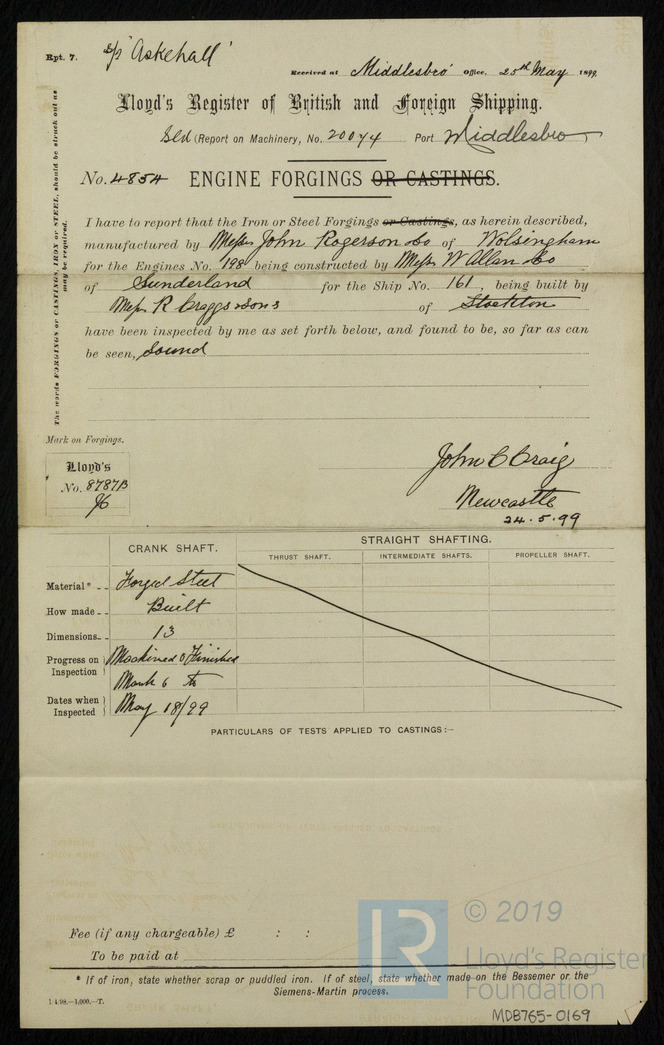 Rpt. 7. s/s 'Askehall'
Received at Middlesbro' Office, 25th May 1899
Lloyd's Register of British and Foreign Shipping.
Sld (Report on Machinery, No. 20074 Port Middlesbro
No. 4854 ENGINE FORGINGS OR CASTINGS.
The words FORGINGS or CASTINGS, IRON or STEEL, should be struck out as
may be required.
I have to report that the Iron or Steel Forgings or Castings, as herein described,
manufactured by Messrs John Rogerson & Co of Wolsingham
for the Engines No. 198 being constructed by Messrs W Allan & Co
of Sunderland for the Ship No. 161, being built by
Messrs R Craggs & Sons of Stockton
have been inspected by me as set forth below, and found to be, so far as can
be seen, Sound
Mark on Forgings.
Lloyd's
No. 8787B
John C Craig
Newcastle
24.5.99
CRANK SHAFT. STRAIGHT SHAFTING.
THRUST SHAFT. INTERMEDIATE SHAFTS. PROPELLER SHAFT.
Material* Forged Steel
How made Built
Dimensions 13
Progress on
Inspection
Machined & Finished
March 6 th
Dates when
Inspected
May 18/99
PARTICULARS OF TESTS APPLIED TO CASTINGS:—
Fee (if any chargeable) £ : :
To be paid at
* If of iron, state whether scrap or puddled iron. If of steel, state whether made on the Bessemer or the
Siemens-Martin process.
1/4/98.—1,000.—T.
LR
© 2019
Lloyd's Register
Foundation
MDB765-0169